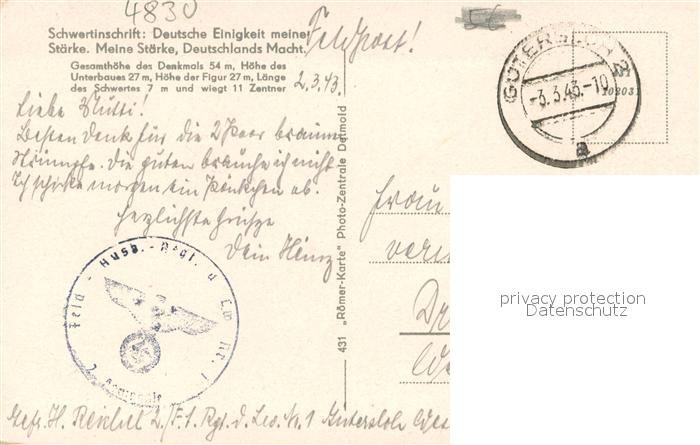 4830
Schwertinschrift: Deutsche Einigkeit meine
Stärke. Meine Stärke, Deutschlands Macht.
Gesamthöhe des Denkmals 54 m, Höhe des
Unterbaues 27 m, Höhe der Figur 27 m, Länge
des Schwertes 7 m und wiegt 11 Zentner
Feldpost!
2.3.43
Liebe Mutti!
Besten Dank für die 2 Paar braunen
Strümpfe. Die guten brauche ich nicht
Ich schicke morgen ein Päckchen ab.
Herzlichste Grüsze
Dein Heinz
GÜTERSLOH 2
-3.3.43.-10
a
431 „Römer-Karte" Photo-Zentrale Detmold
Frau
Dr
privacy protection
Datenschutz
Feld - Ausb.-Regt. d. Lw Nr. 1
2. Kompanie
Gefr. H. Reichel 2./F.A. Rgt. d. Lw. Nr. 1 Gütersloh